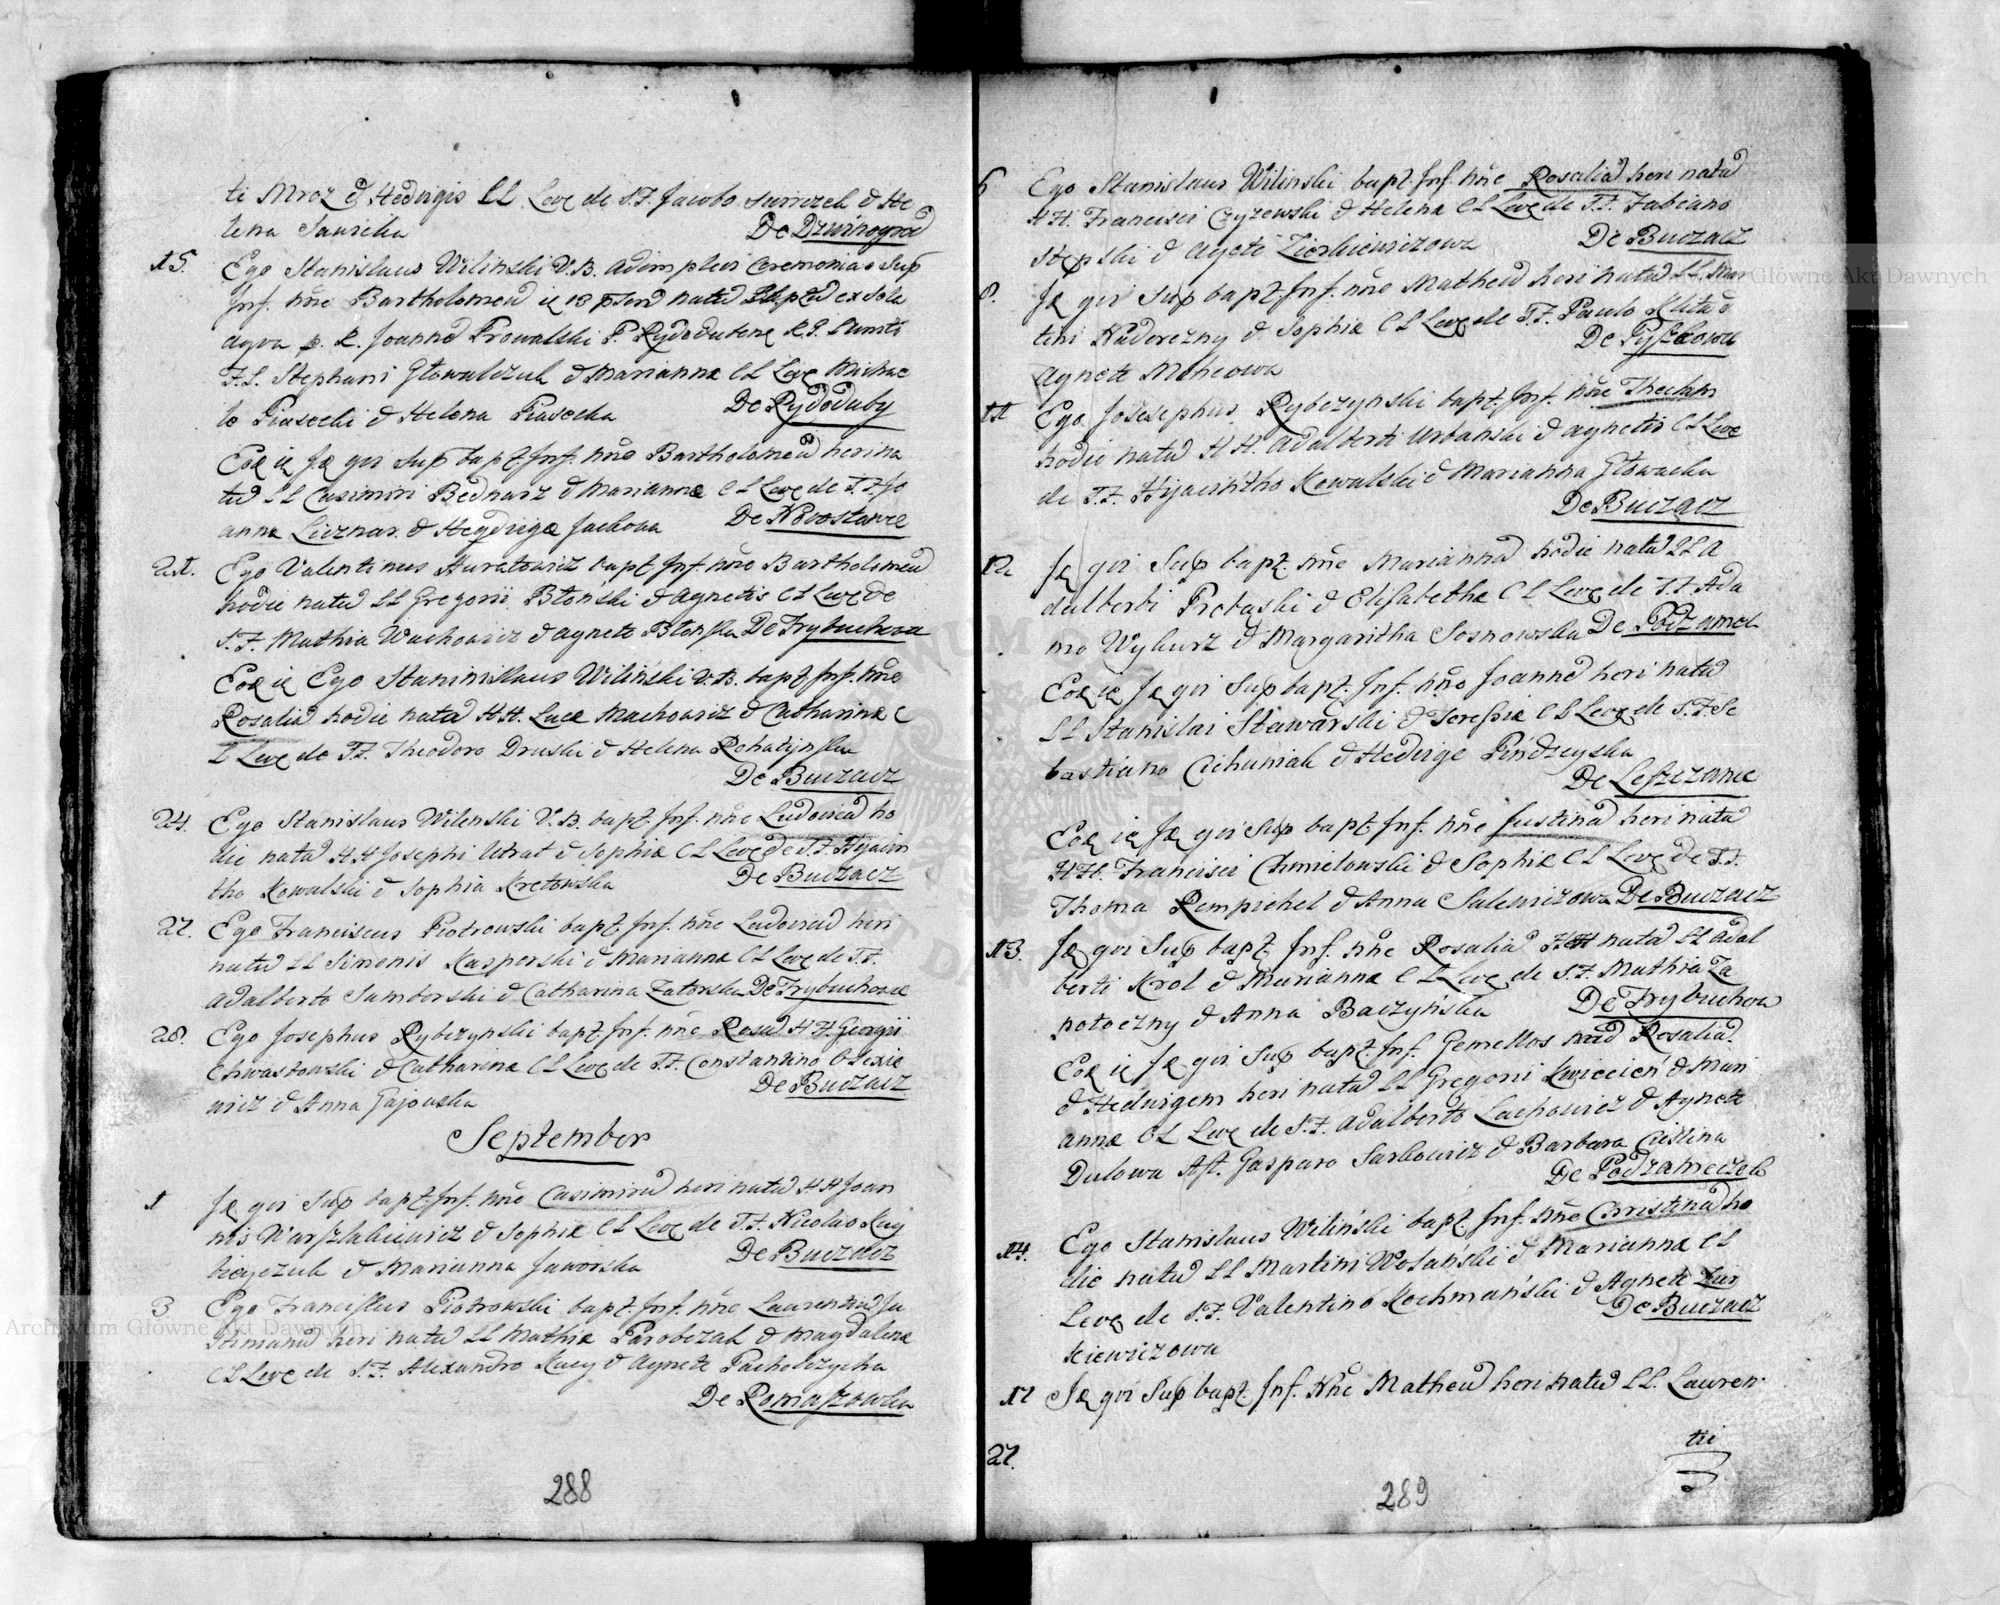 ti Mroz & Hedvigis LL Leve de S.F. Jacobo Surrczek & He
lena Saurcika De Dzwinogrod
15. Ego Stanislaus Wilinski V.B. adimplevi Ceremonias Sup
Inf. nñe Bartholomeũ
F.L. Stephani Głowalczuk & Mariannæ CL Leve Michae
lo Piasecki & Helena Piasecka De Rydoduby
Eoę ię Ię qvi Sup bapt. Inf. nñe Bartholomeũ heri na
tũ LL Casimiri Bednarz & Mariannæ CL Leve de S.F. Jo
anne Licznar & Hegdvige Jachowa De Nowostawce
21. Ego Valentinus Kuratowicz bapt. Inf. nñe Bartholomeũ
hodie natũ LL Gregorii Błoński & Agnetis CL Leve de
S.F. Mathia Wachowicz & Agnete Błońska De Trybuchowce
Eoę ię Ego Staninislaus Wiliński V.B. bapt. Inf. nñe
Rosaliã hodie natã HH. Lucæ Machowicz & Catharinæ C
L Leve de S.F. Theodoro Druski & Helena Rohatyńska
De Buczacz
24. Ego Stanislaus Wilenski V.B. bapt. Inf. nñe Ludovicũ ho
die natũ HH Josephi Utrat & Sophiæ CL Leve de S.F. Hÿacin
tho Kowalski & Sophia Kretowska De Buczacz
27. Ego Franciscus Piotrowski bapt. Inf. nñe Ludovicũ heri
natũ LL Simonis Kasperski & Mariannæ CL Leve de S.F.
Adalberto Samborski & Catharina Zatorska De Trybuchowce
28. Ego Josephus Rybczynski bapt. Inf. nñe Rosã HH Georgii
Chwastowski & Catharinæ CL Leve de S.F. Constantino
wicz & Anna Gajowska De Buczacz
September
1 Ię qvi Sup bapt. Inf. nñe Casimirũ heri natũ HH Joan
nis Warszlakiewicz & Sophiæ CL Leve de S.F. Nicolao
& Marianna Jaworska De Buczacz
3 Ego Franciscus Piotrowski bapt. Inf. nñe Laurentiũ Ju
stinianũ heri natũ LL Mathiæ Parobczak & Magdalenæ
CL Leve de S.F. Alexandro Kucy & Agnete Pacholczycha
De Romaszowka
288
6 Ego Stanislaus Wilinski bapt. Inf. nñe Rosaliã heri natã
HH. Francisci Czyzewski & Helenæ CL Leve de S.F. Fabiano
Stępski & Agnete Ziorkiewiczowa De Buczacz
8. Ię qvi Sup bapt. Inf. nñe Matheũ heri natũ LL. Mar
tini Nadorezny & Sophiæ CL Leve de S.F. Paulo Kluta &
Agnete Miheowa De Pyszkowce
11 Ego Josesephus Rybczynski bapt. Inf. nñe Theclam
hodie natã HH. Adalberti Urbanski & Agnetis CL Leve
de S.F. Hijacintho Kowalski & Marianna Głowacka
De Buczacz
12 Ię qvi Sup bapt. nñe Mariannã hodie natã LL A
dalberti Prctaski & Elisabethæ CL Leve de S.F. Ada
mo Wykurz & Margaritha Sosnowska De Podzamek
Eoę ię Ię qvi Sup bapt. Inf. nñe Joannẽ heri natũ
LL Stanislai Stawarski & Teressiæ CL Leve de S.F. Se
bastiano Cichuniak & Hedvige Pindzeyska
De Leszczance
Eoę ię Ię qvi Sup bapt. Inf. nñe Justinã heri natã
HH. Francisci Chmielowski & Sophiæ CL Leve de S.F.
Thoma Rempichel & Anna Salewiczowa De Buczacz
13. Ię qvi Sup bapt. Inf. nñe Rosaliã natã LL Adal
berti Krol & Mariannæ CL Leve de S.F. Mathia Za
potoczny & Anna Baczyńska De Trybuchow
Eoę ię Ię qvi Sup bapt. Inf. Gemellos Rosaliã
& Hedwigem heri natas LL Gregorii Kwiecień & Mari
annæ CL Leve de S.F. Adalberto Lachowicz & Agnete
Dulowa Ast. Gasparo Sarkowicz & Barbara Cieslina
De Podzameczek
14. Ego Stanislaus Wiliński bapt. Inf. nñe Christinã ho
die natã LL Martini Wolański & Mariannæ CL
Leve de S.F. Valentino Kochmański & Agnete
kiewiczowa De Buczacz
17 Ię qvi Sup bapt. Inf. Nñe Matheũ heri natũ LL. Lauren
tii
27.
289
Archiwum Główne Akt Dawnych
Archiwum Główne Akt Dawnych